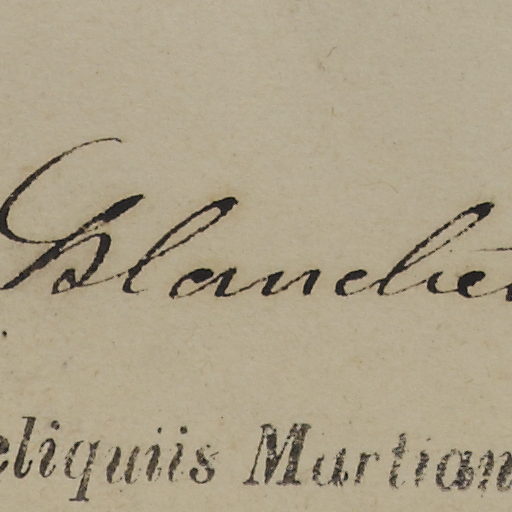 Blanchet
eliquiis Martian